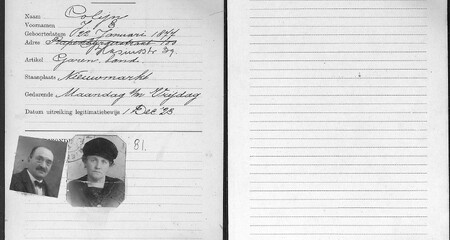 Naam Polijn
Voornamen J E
Geboortedatum 22 Januari 1877
Adres Rapenburgerstraat 100
Artikel Garen, band.
Staanplaats Nieuwmarkt
Gedurende Maandag t/m Vrijdag
Datum uitreiking legitimatiebewijs 1 Dec 23
81.